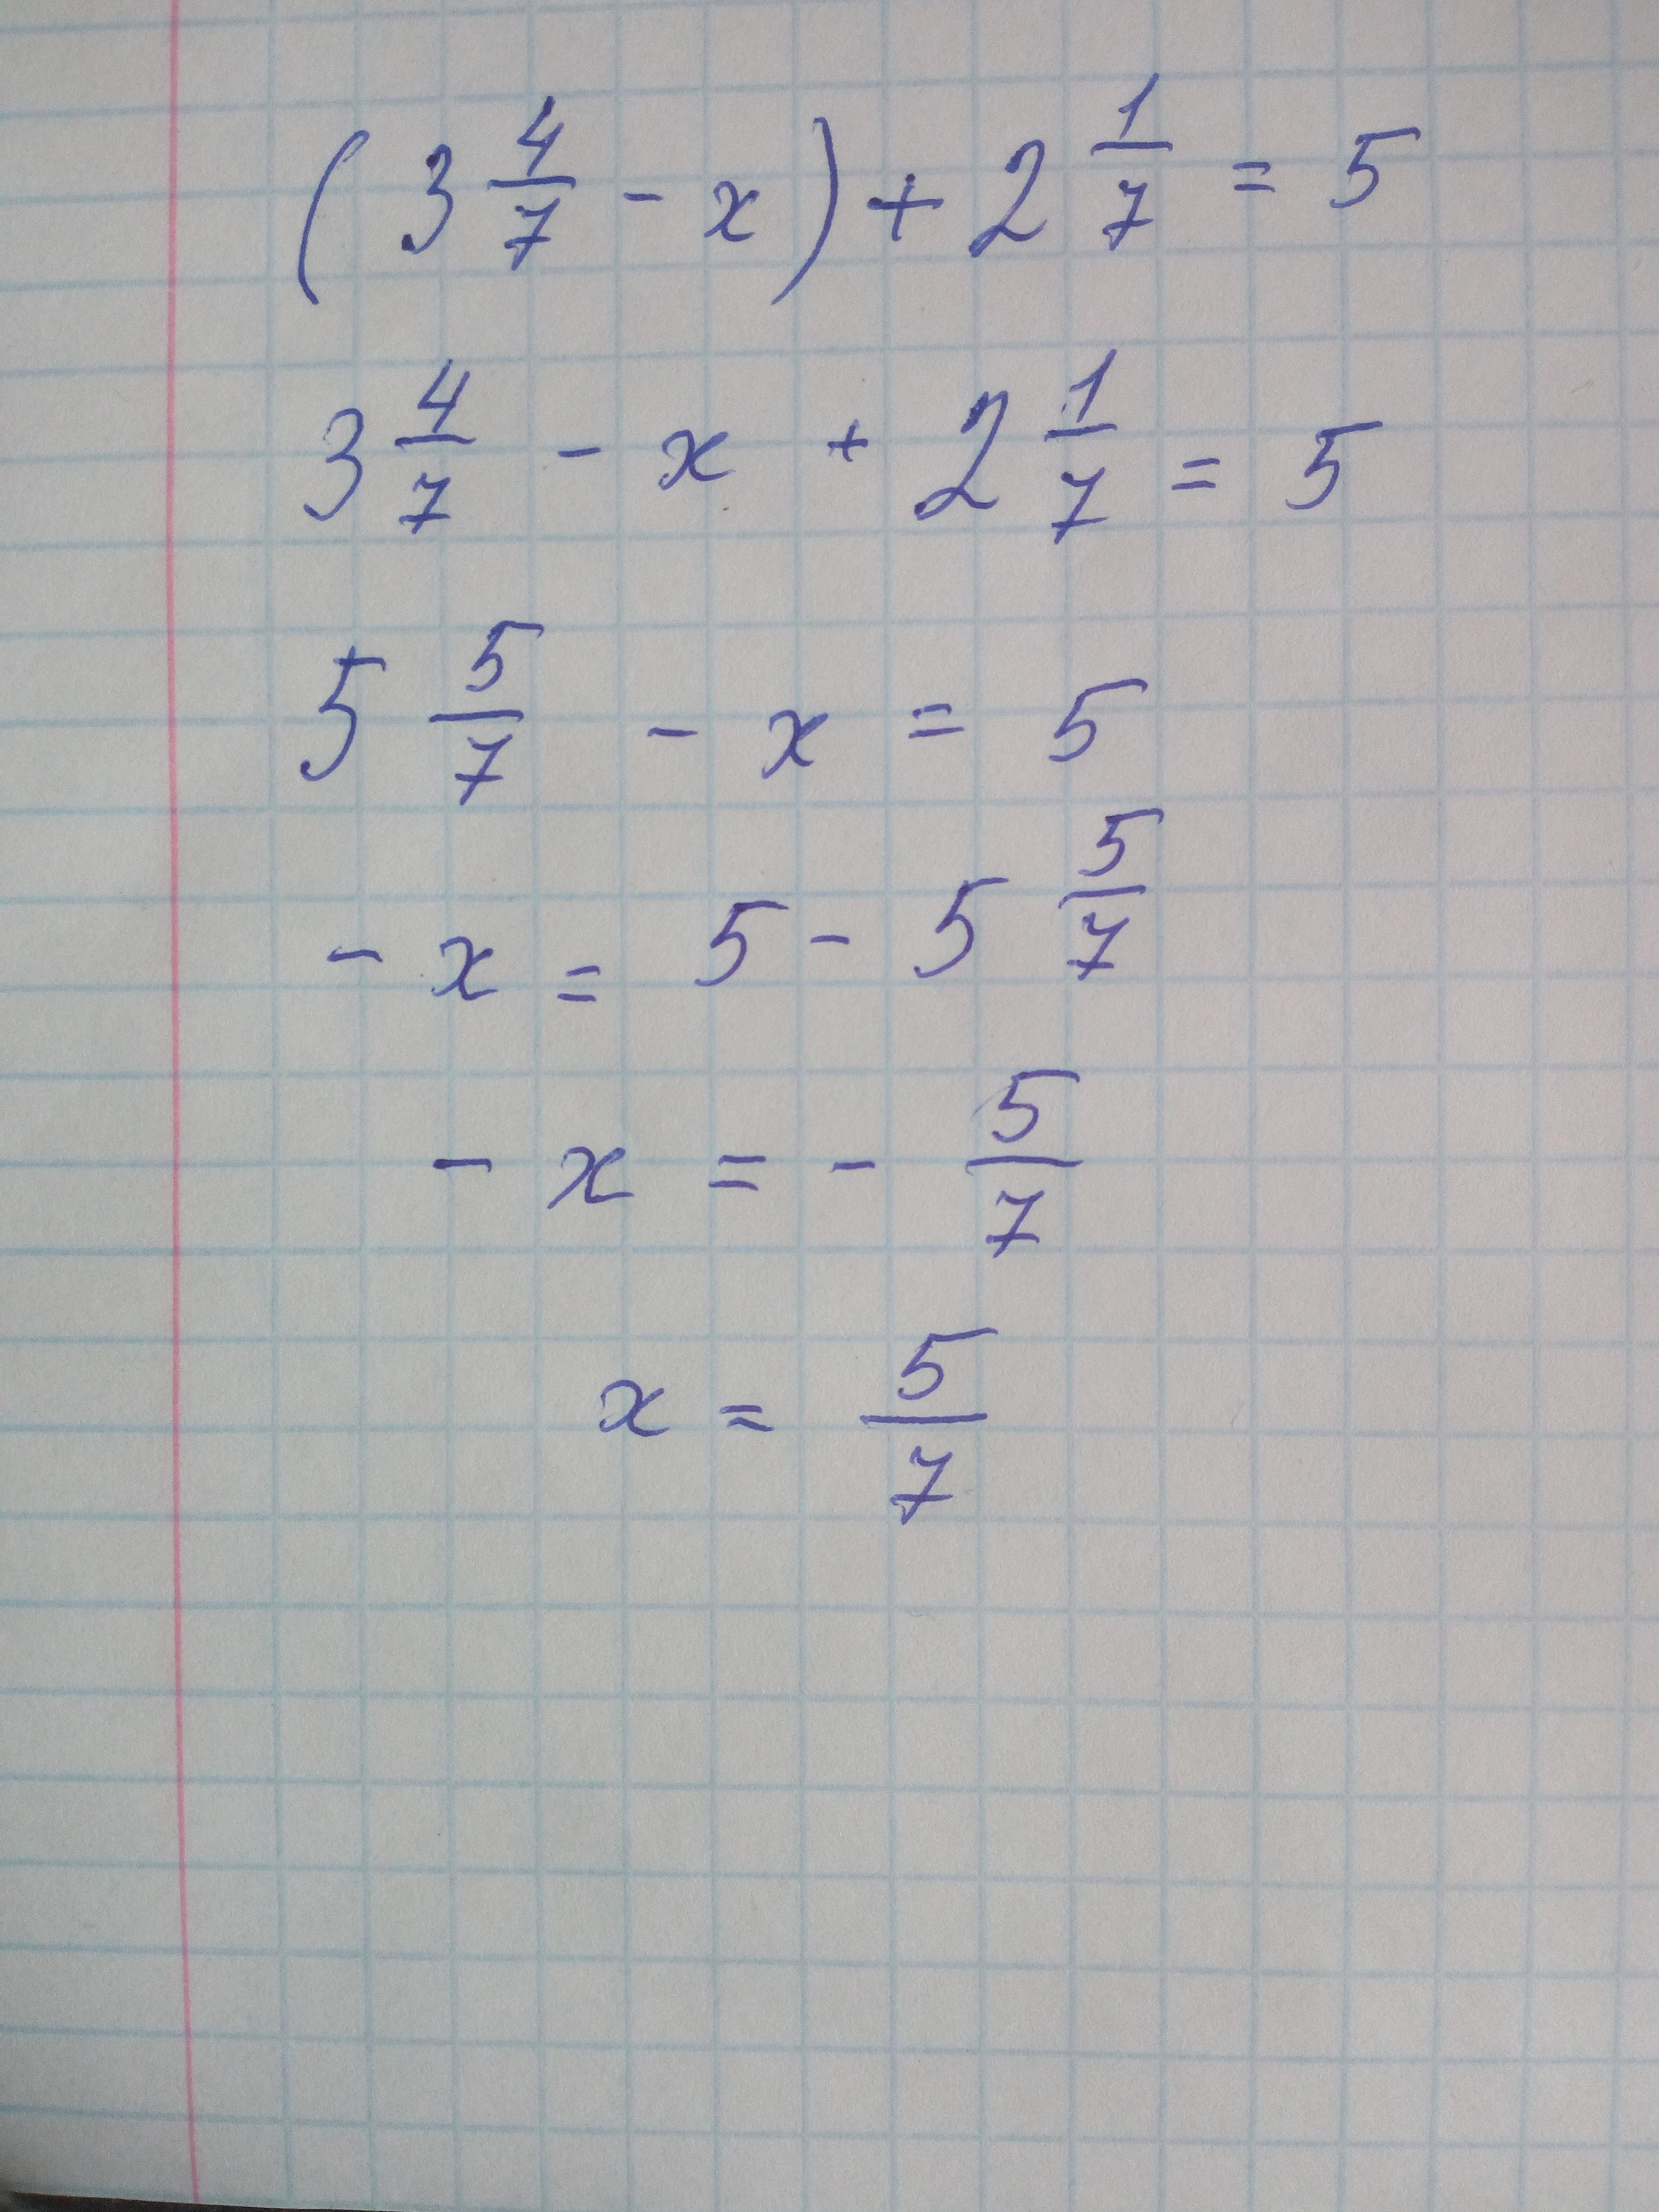 (3 4/7 - x) + 2 1/7 = 5
3 4/7 - x + 2 1/7 = 5
5 5/7 - x = 5
- x = 5 - 5 5/7
- x = - 5/7
x = 5/7